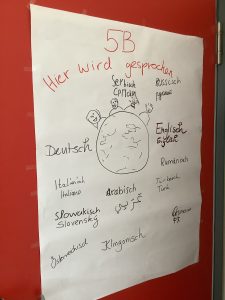 5B
Hier wird gesprochen
Serbisch
Српски
Russisch
русский
Deutsch
Englisch
Rumänisch
Italienisch
Italiano
Arabisch
عربي
Türkisch
Türk
Slowakisch
Slovenský
Österreichisch
Klingonisch